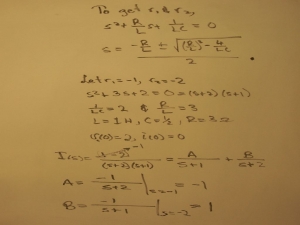 To get r₁ & r₂,
s² + R/L s + 1/LC = 0
s = (-R/L ± √((R/L)² - 4/LC)) / 2
Let r₁ = -1, r₂ = -2
s² + 3s + 2 = 0 = (s+2)(s+1)
1/LC = 2 & R/L = 3
L = 1H, C = 1/2, R = 3Ω
(0) = 2, i(0) = 0
I(s) = -1 / (s+2)(s+1) = A/(s+1) + B/(s+2)
A = -1/(s+2) |s=-1 = -1
B = -1/(s+1) |s=-2 = 1